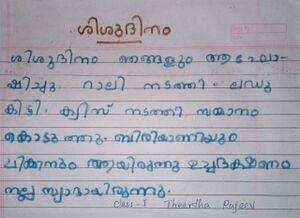 ശിശുദിനം
ശിശുദിനം ഞങ്ങളും ആഘോ-
ഷിച്ചു. റാലി നടത്തി. ലഡു
കിട്ടി. ക്വിസ് നടത്തി സമ്മാനം
കൊടുത്തു. ബിരിയാണിയും
ചിക്കനും ആയിരുന്നു ഉച്ചഭക്ഷണം
നല്ല സ്വാദായിരുന്നു.
Class-I Theertha Rajeev